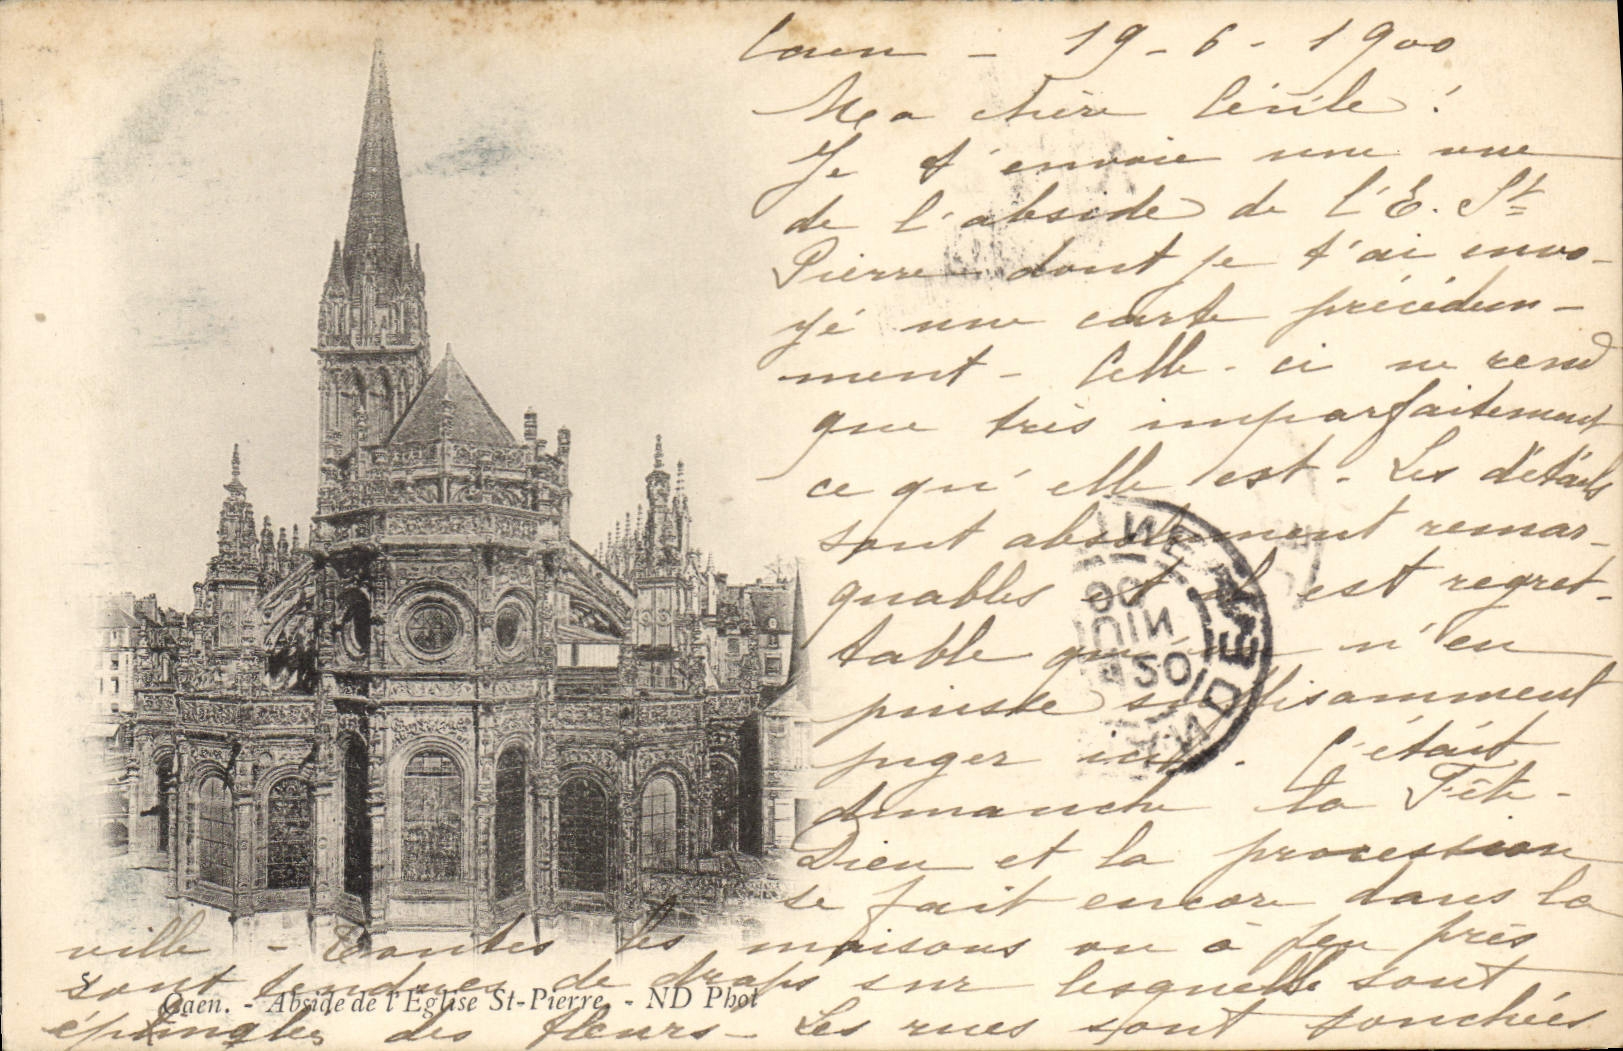 Caen - 19 - 6 - 1900
Ma chère Cécile !
Je t'envoie une vue
de l'abside de l'E. St
Pierre dont je t'ai envo-
yé une carte précédem-
ment - Celle-ci ne rend
que très imparfaitement
ce qu'elle est. Les détails
sont absolument remar-
quables et il est regret-
table qu' n'en
puisse suffisamment
juger . C'était
dimanche la Fête-
Dieu et la procession
se fait encore dans la
ville - Toutes les maisons ou à peu près
sont tendues de draps sur lesquelles sont
épinglés des fleurs - Les rues sont jonchées
Caen. - Abside de l'Église St-Pierre. - ND Phot
00
JUIN